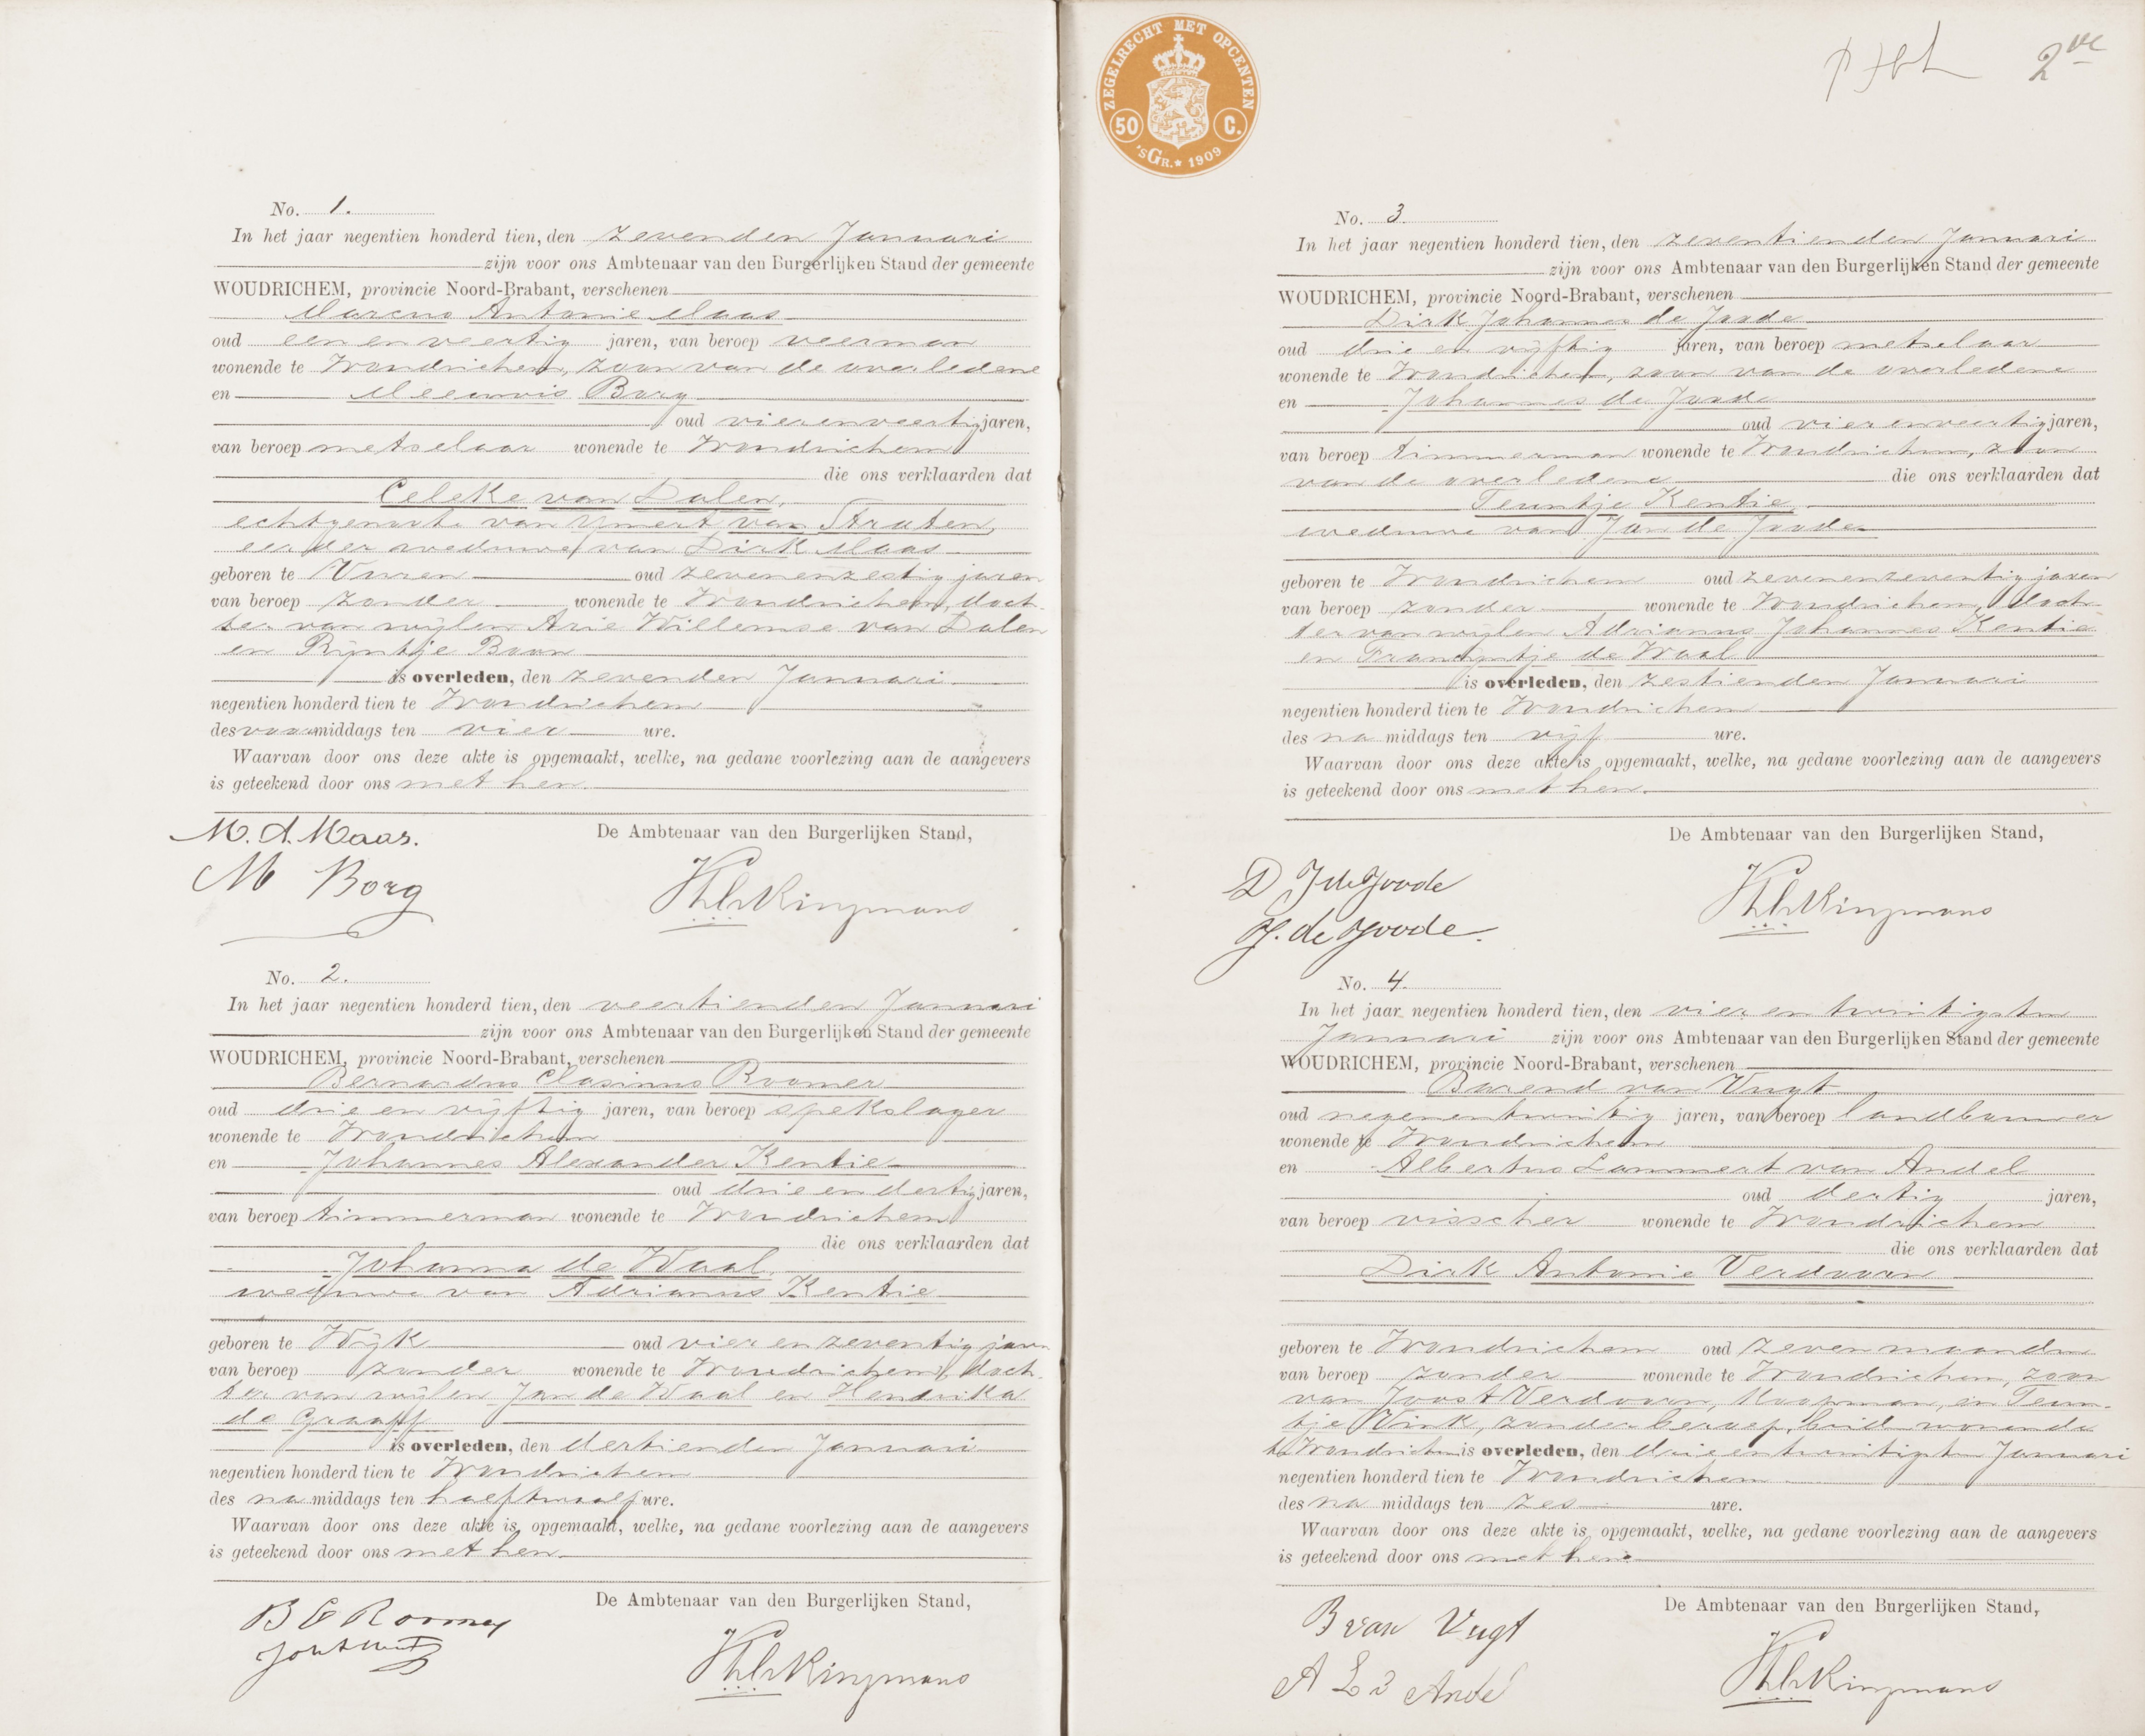 No. 1.
In het jaar negentien honderd tien, den zevenden Januari
zijn voor ons Ambtenaar van den Burgerlijken Stand der gemeente
WOUDRICHEM, provincie Noord-Brabant, verschenen
Marcus Antonie Maas
oud een en veertig jaren, van beroep veerman
wonende te Woudrichem, zoon van de overledene
en Meeuwis Borg
oud vierenveertig jaren,
van beroep metselaar wonende te Woudrichem
die ons verklaarden dat
Celeke van Dalen,
echtgenoote van Ymert van Straten,
eerder weduwe van Dirk Maas
geboren te Vuren oud zevenenzestig jaren
van beroep zonder wonende te Woudrichem, doch-
ter van wijlen Arie Willemse van Dalen
en Rijntje Boon
is overleden, den zevenden Januari
negentien honderd tien te Woudrichem
des voormiddags ten vier ure.
Waarvan door ons deze akte is opgemaakt, welke, na gedane voorlezing aan de aangevers
is geteekend door ons met hen.
De Ambtenaar van den Burgerlijken Stand,
M. A. Maas.
M Borg
No. 2.
In het jaar negentien honderd tien, den veertienden Januari
zijn voor ons Ambtenaar van den Burgerlijken Stand der gemeente
WOUDRICHEM, provincie Noord-Brabant, verschenen
Bernardus Clasinus Roomer
oud drie en vijftig jaren, van beroep spekslager
wonende te Woudrichem
en Johannes Alexander Kentie
oud drie en dertig jaren,
van beroep timmerman wonende te Woudrichem
die ons verklaarden dat
Johanna de Waal,
weduwe van Adrianus Kentie
geboren te Wijk oud vier en zeventig jaren
van beroep zonder wonende te Woudrichem, doch-
ter van wijlen Jan de Waal en Hendrika
de Graaff
is overleden, den dertienden Januari
negentien honderd tien te Woudrichem
des namiddags ten half twaalf ure.
Waarvan door ons deze akte is opgemaakt, welke, na gedane voorlezing aan de aangevers
is geteekend door ons met hen.
De Ambtenaar van den Burgerlijken Stand,
B C Roomer
ZEGELRECHT MET OPCENTEN
50 C.
'sGR.★1909
2de
No. 3.
In het jaar negentien honderd tien, den zeventienden Januari
zijn voor ons Ambtenaar van den Burgerlijken Stand der gemeente
WOUDRICHEM, provincie Noord-Brabant, verschenen
Dirk Johannes de Joode
oud drie en vijftig jaren, van beroep metselaar
wonende te Woudrichem, zoon van de overledene
en Johannes de Joode
oud vier en veertig jaren,
van beroep timmerman wonende te Woudrichem, zoon
van de overledene die ons verklaarden dat
Teuntje Kentie,
weduwe van Jan de Joode
geboren te Woudrichem oud zevenenzeventig jaren
van beroep zonder wonende te Woudrichem, doch-
ter van wijlen Adrianus Johannes Kentie
en Fransyntje de Waal
is overleden, den zestienden Januari
negentien honderd tien te Woudrichem
des na middags ten vijf ure.
Waarvan door ons deze akte is opgemaakt, welke, na gedane voorlezing aan de aangevers
is geteekend door ons met hen.
De Ambtenaar van den Burgerlijken Stand,
D J de Joode
J. de Joode.
No. 4.
In het jaar negentien honderd tien, den vier en twintigsten
Januari zijn voor ons Ambtenaar van den Burgerlijken Stand der gemeente
WOUDRICHEM, provincie Noord-Brabant, verschenen
Barend van Vugt
oud negenentwintig jaren, van beroep landbouwer
wonende te Woudrichem
en Albertus Lammert van Andel
oud dertig jaren,
van beroep visscher wonende te Woudrichem
die ons verklaarden dat
Dirk Antonie Verdoorn
geboren te Woudrichem oud zeven maanden
van beroep zonder wonende te Woudrichem, zoon
van Joost Verdoorn, koopman, en Teun-
tje Vink, zonder beroep, beid wonende
te Woudrichem is overleden, den drieentwintigsten Januari
negentien honderd tien te Woudrichem
des na middags ten zes ure.
Waarvan door ons deze akte is opgemaakt, welke, na gedane voorlezing aan de aangevers
is geteekend door ons met hen
De Ambtenaar van den Burgerlijken Stand,
B van Vugt
A L v Andel